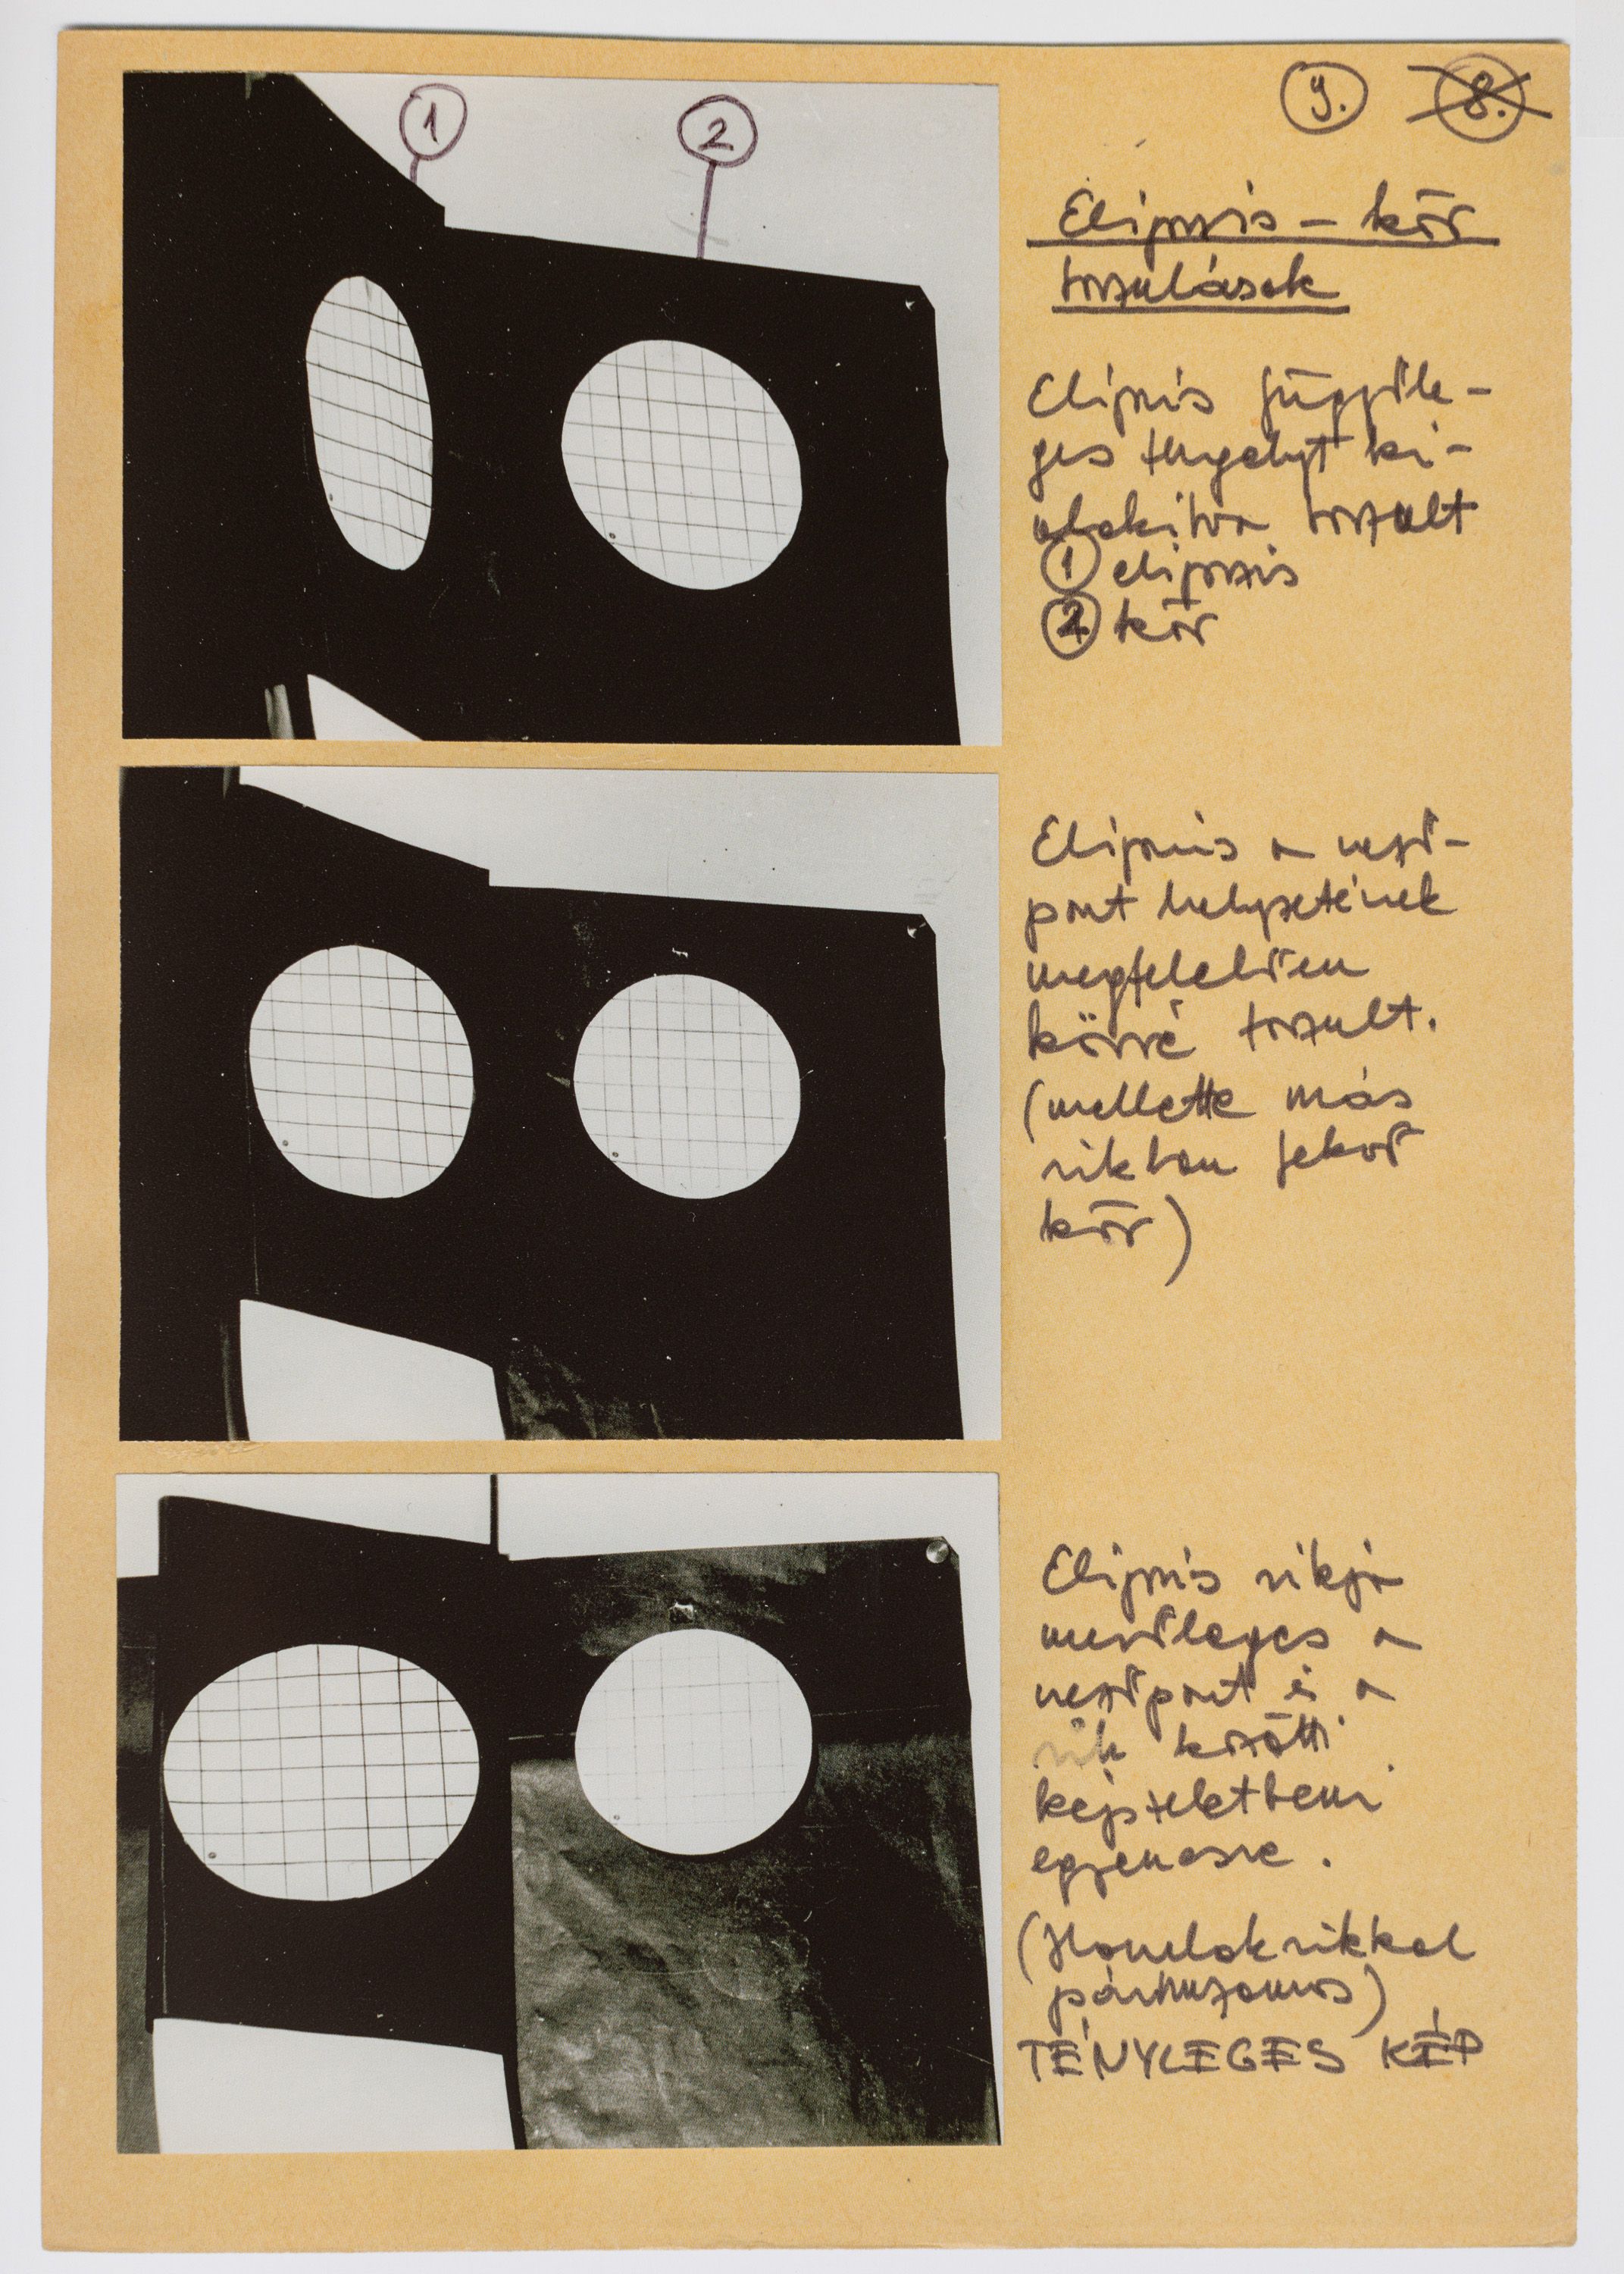 1
2
9.
8.
Elipszis – kör
torzulások
Elipszis függőle-
ges tengelyt ki-
alakítva torzult
① elipszis
② kör
Elipszis a nező-
pont helyzetének
megfelelően
körré torzult.
(mellette más
síkban fekvő
kör)
Elipszis síkja
merőleges a
nezőpont és a
sík közötti
képzeletbeni
egyenesre.
(Homloksíkkal
párhuzamos)
TÉNYLEGES KÉP